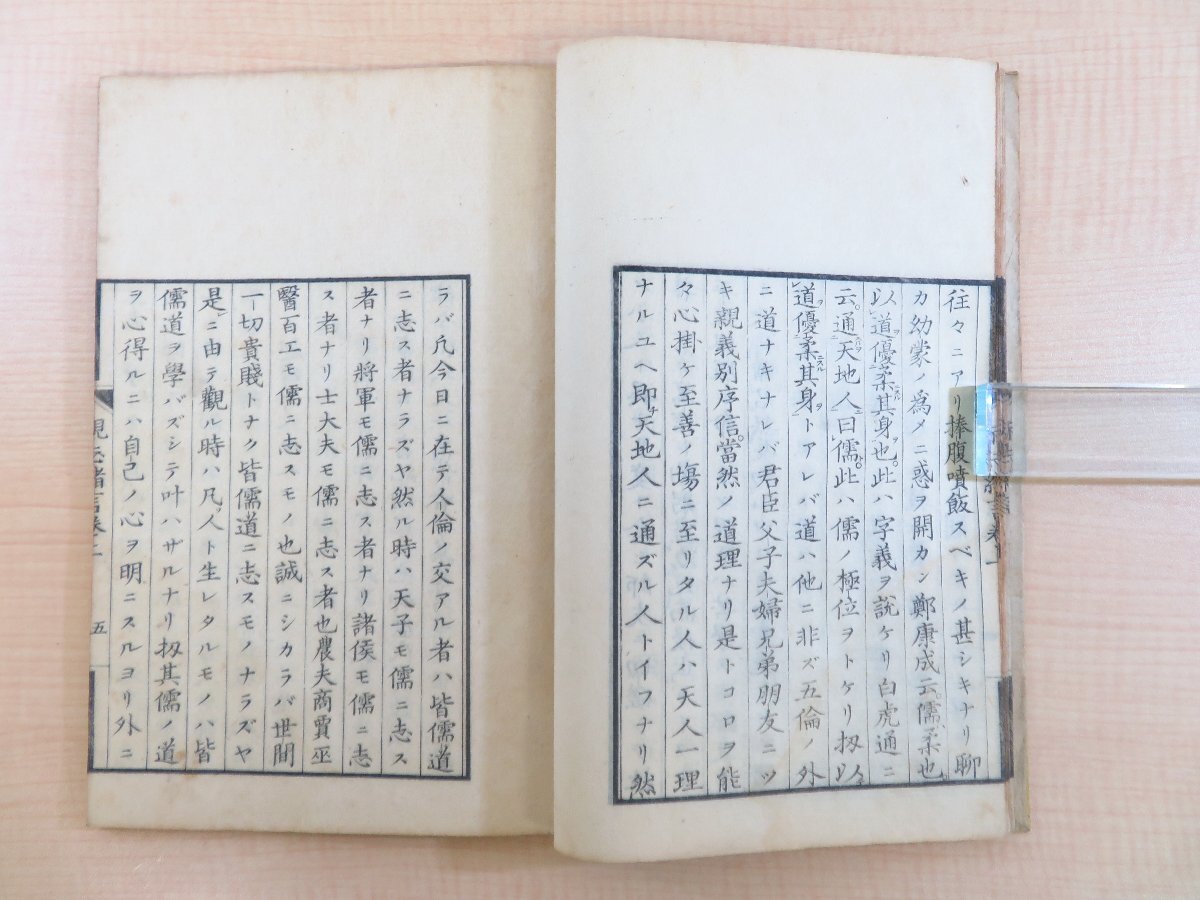 往々ニアリ捧腹噴飯スベキノ甚シキナリ聊
カ幼蒙ノ爲メニ惑ヲ開カン鄭康成云儒柔也
以道優柔其身也此ハ字義ヲ説ケリ白虎通ニ
云通天地人曰儒此ハ儒ノ極位ヲトケリ扨以
道優柔其身トアレバ道ハ他ニ非ズ五倫ノ外
ニ道ナキナレバ君臣父子夫婦兄弟朋友ニツ
キ親義別序信當然ノ道理ナリ是トコロヲ能
々心掛ケ至善ノ塲ニ至リタル人ハ天人一理
ナルユヘ即天地人ニ通ズル人トイフナリ然
ラバ凢今日ニ在テ人倫ノ交アル者ハ皆儒道
ニ志ス者ナラズヤ然ル時ハ天子モ儒ニ志ス
者ナリ將軍モ儒ニ志ス者ナリ諸侯モ儒ニ志
ス者ナリ士大夫モ儒ニ志ス者也農夫商賈巫
醫百工モ儒ニ志スモノ也誠ニシカラバ世間
一切貴賤トナク皆儒道ニ志スモノナラズヤ
是ニ由テ觀ル時ハ凡人ト生レタルモノハ皆
儒道ヲ學バズシテ叶ハザルナリ扨其儒ノ道
ヲ心得ルニハ自己ノ心ヲ明ニスルヨリ外ニ
五